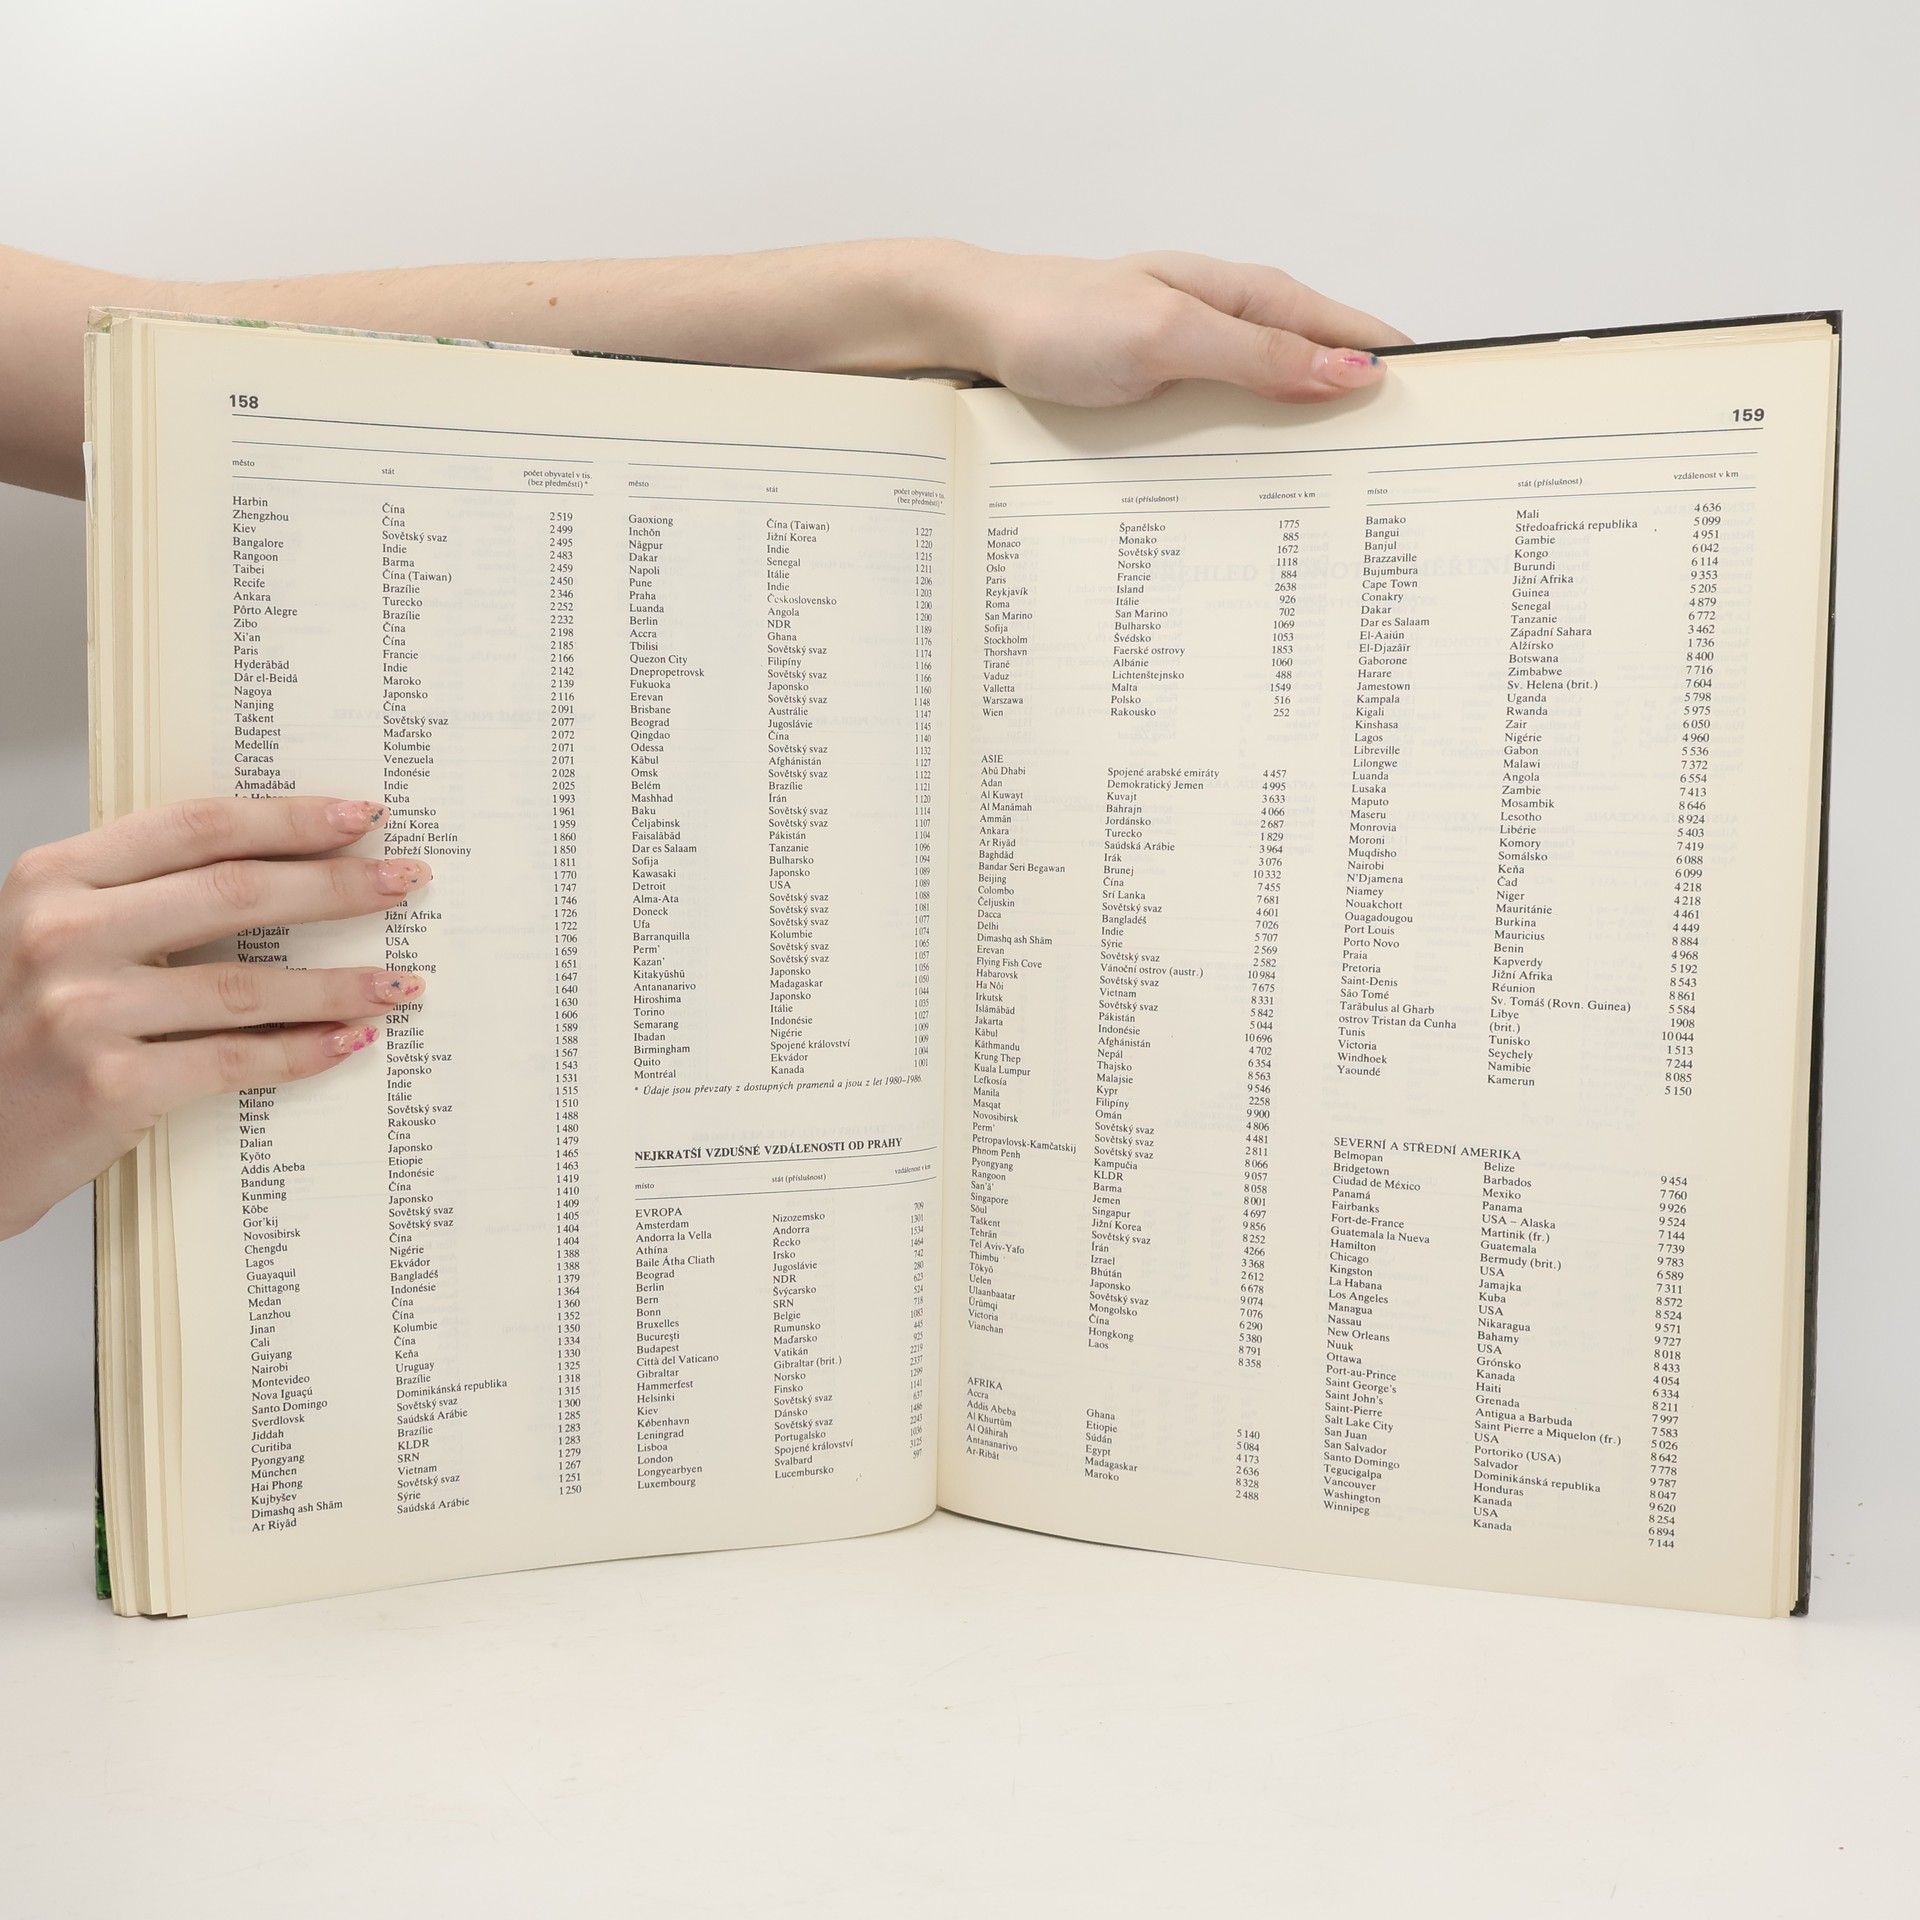 158
město stát počet obyvatel v tis. (bez předměstí) *
Harbin Čína 2 519
Zhengzhou Čína 2 499
Kiev Sovětský svaz 2 495
Bangalore Indie 2 483
Rangoon Barma 2 459
Taibei Čína (Taiwan) 2 450
Recife Brazílie 2 346
Ankara Turecko 2 252
Pôrto Alegre Brazílie 2 232
Zibo Čína 2 198
Xi'an Čína 2 185
Paris Francie 2 166
Hyderābād Indie 2 142
Dār el-Beidā Maroko 2 139
Nagoya Japonsko 2 116
Nanjing Čína 2 091
Taškent Sovětský svaz 2 077
Budapest Maďarsko 2 072
Medellín Kolumbie 2 071
Caracas Venezuela 2 071
Surabaya Indonésie 2 028
Ahmadābād Indie 2 025
Kuba 1 993
Rumunsko 1 961
Jižní Korea 1 959
Západní Berlín 1 860
Pobřeží Slonoviny 1 850
1 811
1 770
1 747
1 746
Jižní Afrika 1 726
El-Djazāïr Alžírsko 1 722
Houston USA 1 706
Warszawa Polsko 1 659
Hongkong 1 651
1 647
1 640
1 630
SRN 1 606
Brazílie 1 589
Brazílie 1 588
Sovětský svaz 1 567
Japonsko 1 543
Kanpur Indie 1 531
Milano Itálie 1 515
Minsk Sovětský svaz 1 510
Wien Rakousko 1 488
Dalian Čína 1 480
Kyōto Japonsko 1 479
Addis Abeba Etiopie 1 465
Bandung Indonésie 1 463
Kunming Čína 1 419
Kōbe Japonsko 1 410
Gor'kij Sovětský svaz 1 409
Novosibirsk Sovětský svaz 1 405
Chengdu Čína 1 404
Lagos Nigérie 1 404
Guayaquil Ekvádor 1 388
Chittagong Bangladéš 1 388
Medan Indonésie 1 379
Lanzhou Čína 1 364
Jinan Čína 1 360
Cali Kolumbie 1 352
Guiyang Čína 1 350
Nairobi Keňa 1 334
Montevideo Uruguay 1 330
Nova Iguaçú Brazílie 1 325
Santo Domingo Dominikánská republika 1 318
Sverdlovsk Sovětský svaz 1 315
Jiddah Saúdská Arábie 1 300
Curitiba Brazílie 1 285
Pyongyang KLDR 1 283
München SRN 1 283
Hai Phong Vietnam 1 279
Kujbyšev Sovětský svaz 1 267
Dimashq ash Shām Sýrie 1 251
Ar Riyād Saúdská Arábie 1 250
město stát počet obyvatel v tis. (bez předměstí)*
Gaoxiong Čína (Taiwan) 1 227
Inchŏn Jižní Korea 1 220
Nāgpur Indie 1 215
Dakar Senegal 1 211
Napoli Itálie 1 206
Pune Indie 1 203
Praha Československo 1 200
Luanda Angola 1 200
Berlin NDR 1 189
Accra Ghana 1 176
Tbilisi Sovětský svaz 1 174
Quezon City Filipíny 1 166
Dnepropetrovsk Sovětský svaz 1 166
Fukuoka Japonsko 1 160
Erevan Sovětský svaz 1 148
Brisbane Austrálie 1 147
Beograd Jugoslávie 1 145
Qingdao Čína 1 140
Odessa Sovětský svaz 1 132
Kābul Afghánistán 1 127
Omsk Sovětský svaz 1 122
Belém Brazílie 1 121
Mashhad Írán 1 120
Baku Sovětský svaz 1 114
Čeljabinsk Sovětský svaz 1 107
Faisalābād Pákistán 1 104
Dar es Salaam Tanzanie 1 096
Sofija Bulharsko 1 094
Kawasaki Japonsko 1 089
Detroit USA 1 089
Alma-Ata Sovětský svaz 1 088
Doneck Sovětský svaz 1 081
Ufa Sovětský svaz 1 077
Barranquilla Kolumbie 1 074
Perm' Sovětský svaz 1 065
Kazan' Sovětský svaz 1 057
Kitakyūshū Japonsko 1 056
Antananarivo Madagaskar 1 050
Hiroshima Japonsko 1 044
Torino Itálie 1 035
Semarang Indonésie 1 027
Ibadan Nigérie 1 009
Birmingham Spojené království 1 009
Quito Ekvádor 1 004
Montréal Kanada 1 001
* Údaje jsou převzaty z dostupných pramenů a jsou z let 1980–1986.
NEJKRATŠÍ VZDUŠNÉ VZDÁLENOSTI OD PRAHY
místo stát (příslušnost) vzdálenost v km
EVROPA
Amsterdam Nizozemsko 709
Andorra la Vella Andorra 1301
Athína Řecko 1534
Baile Átha Cliath Irsko 1464
Beograd Jugoslávie 742
Berlin NDR 280
Bern Švýcarsko 623
Bonn SRN 524
Bruxelles Belgie 718
Bucureşti Rumunsko 1083
Budapest Maďarsko 445
Città del Vaticano Vatikán 925
Gibraltar Gibraltar (brit.) 2219
Hammerfest Norsko 2337
Helsinki Finsko 1299
Kiev Sovětský svaz 1141
København Dánsko 637
Leningrad Sovětský svaz 1486
Lisboa Portugalsko 2243
London Spojené království 1036
Longyearbyen Svalbard 3125
Luxembourg Lucembursko 597
159
místo stát (příslušnost) vzdálenost v km
Madrid Španělsko 1775
Monaco Monako 885
Moskva Sovětský svaz 1672
Oslo Norsko 1118
Paris Francie 884
Reykjavík Island 2638
Roma Itálie 926
San Marino San Marino 702
Sofija Bulharsko 1069
Stockholm Švédsko 1053
Thorshavn Faerské ostrovy 1853
Tiranë Albánie 1060
Vaduz Lichtenštejnsko 488
Valletta Malta 1549
Warszawa Polsko 516
Wien Rakousko 252
ASIE
Abū Dhabi Spojené arabské emiráty 4 457
Adan Demokratický Jemen 4 995
Al Kuwayt Kuvajt 3 633
Al Manāmah Bahrajn 4 066
Ammān Jordánsko 2 687
Ankara Turecko 1 829
Ar Riyād Saúdská Arábie 3 964
Baghdād Irák 3 076
Bandar Seri Begawan Brunej 10 332
Beijing Čína 7 455
Colombo Srí Lanka 7 681
Čeljuskin Sovětský svaz 4 601
Dacca Bangladéš 7 026
Delhi Indie 5 707
Dimashq ash Shām Sýrie 2 569
Erevan Sovětský svaz 2 582
Flying Fish Cove Vánoční ostrov (austr.) 10 984
Habarovsk Sovětský svaz 7 675
Ha Nôi Vietnam 8 331
Irkutsk Sovětský svaz 5 842
Islāmābād Pákistán 5 044
Jakarta Indonésie 10 696
Kābul Afghánistán 4 702
Kāthmandu Nepál 6 354
Krung Thep Thajsko 8 563
Kuala Lumpur Malajsie 9 546
Lefkosía Kypr 2258
Manila Filipíny 9 900
Masqat Omán 4 806
Novosibirsk Sovětský svaz 4 481
Perm' Sovětský svaz 2 811
Petropavlovsk-Kamčatskij Sovětský svaz 8 066
Phnom Penh Kampučia 9 057
Pyongyang KLDR 8 058
Rangoon Barma 8 001
San'ā' Jemen 4 697
Singapore Singapur 9 856
Sŏul Jižní Korea 8 252
Taškent Sovětský svaz 4266
Tehrān Írán 3 368
Tel Aviv-Yafo Izrael 2 612
Thimbu Bhútán 6 678
Tōkyō Japonsko 9 074
Uelen Sovětský svaz 7 076
Ulaanbaatar Mongolsko 6 290
Ürümqi Čína 5 380
Victoria Hongkong 8 791
Vianchan Laos 8 358
AFRIKA
Accra Ghana 5 140
Addis Abeba Etiopie 5 084
Al Khurtūm Súdán 4 173
Al Qāhirah Egypt 2 636
Antananarivo Madagaskar 8 328
Ar-Ribāt Maroko 2 488
místo stát (příslušnost) vzdálenost v km
Bamako Mali 4 636
Bangui Středoafrická republika 5 099
Banjul Gambie 4 951
Brazzaville Kongo 6 042
Bujumbura Burundi 6 114
Cape Town Jižní Afrika 9 353
Conakry Guinea 5 205
Dakar Senegal 4 879
Dar es Salaam Tanzanie 6 772
El-Aaiún Západní Sahara 3 462
El-Djazāïr Alžírsko 1 736
Gaborone Botswana 8 400
Harare Zimbabwe 7 716
Jamestown Sv. Helena (brit.) 7 604
Kampala Uganda 5 798
Kigali Rwanda 5 975
Kinshasa Zair 6 050
Lagos Nigérie 4 960
Libreville Gabon 5 536
Lilongwe Malawi 7 372
Luanda Angola 6 554
Lusaka Zambie 7 413
Maputo Mosambik 8 646
Maseru Lesotho 8 924
Monrovia Libérie 5 403
Moroni Komory 7 419
Muqdisho Somálsko 6 088
Nairobi Keňa 6 099
N'Djamena Čad 4 218
Niamey Niger 4 218
Nouakchott Mauritánie 4 461
Ouagadougou Burkina 4 449
Port Louis Mauricius 8 884
Porto Novo Benin 4 968
Praia Kapverdy 5 192
Pretoria Jižní Afrika 8 543
Saint-Denis Réunion 8 861
São Tomé Sv. Tomáš (Rovn. Guinea) 5 584
Tarābulus al Gharb Libye 1908
ostrov Tristan da Cunha (brit.) 10 044
Tunis Tunisko 1 513
Victoria Seychely 7 244
Windhoek Namibie 8 085
Yaoundé Kamerun 5 150
SEVERNÍ A STŘEDNÍ AMERIKA
Belmopan Belize 9 454
Bridgetown Barbados 7 760
Ciudad de México Mexiko 9 926
Panamá Panama 9 524
Fairbanks USA – Alaska 7 144
Fort-de-France Martinik (fr.) 7 739
Guatemala la Nueva Guatemala 9 783
Hamilton Bermudy (brit.) 6 589
Chicago USA 7 311
Kingston Jamajka 8 572
La Habana Kuba 8 524
Los Angeles USA 9 571
Managua Nikaragua 9 727
Nassau Bahamy 8 018
New Orleans USA 8 433
Nuuk Grónsko 4 054
Ottawa Kanada 6 334
Port-au-Prince Haiti 8 211
Saint George's Grenada 7 997
Saint John's Antigua a Barbuda 7 583
Saint-Pierre Saint Pierre a Miquelon (fr.) 5 026
Salt Lake City USA 8 642
San Juan Portoriko (USA) 7 778
San Salvador Salvador 9 787
Santo Domingo Dominikánská republika 8 047
Tegucigalpa Honduras 9 620
Vancouver Kanada 8 254
Washington USA 6 894
Winnipeg Kanada 7 144